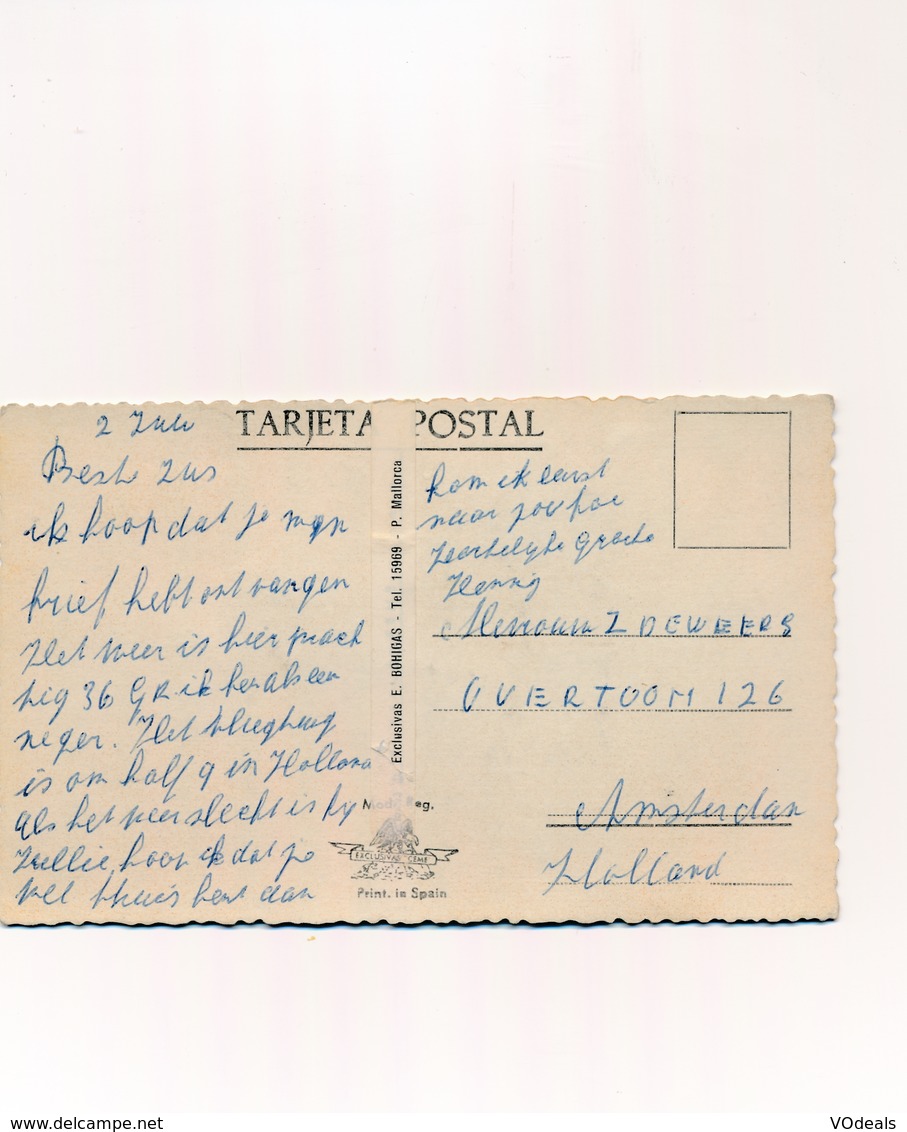 2 Juli
TARJETA POSTAL
Beste zus
ik hoop dat je myn
brief hebt ontvangen
Het weer is hier prach
tig 36 GR ik ben als een
neger. Het vliegtuig
is om half 9 in Holland
Als het weer slecht is by
Jullie, hoop ik dat je
wel thuis bent dan
kom ik eerst
naar jou toe
Hartelyke groete
Henny
Exclusivas E. BOHIGAS - Tel. 15969 - P. Mallorca
Mevrouw Z DEWEERS
OVERTOOM 126
Amsterdam
Holland
eg.
EXCLUSIVAS CEME
Print. in Spain
VOdeals